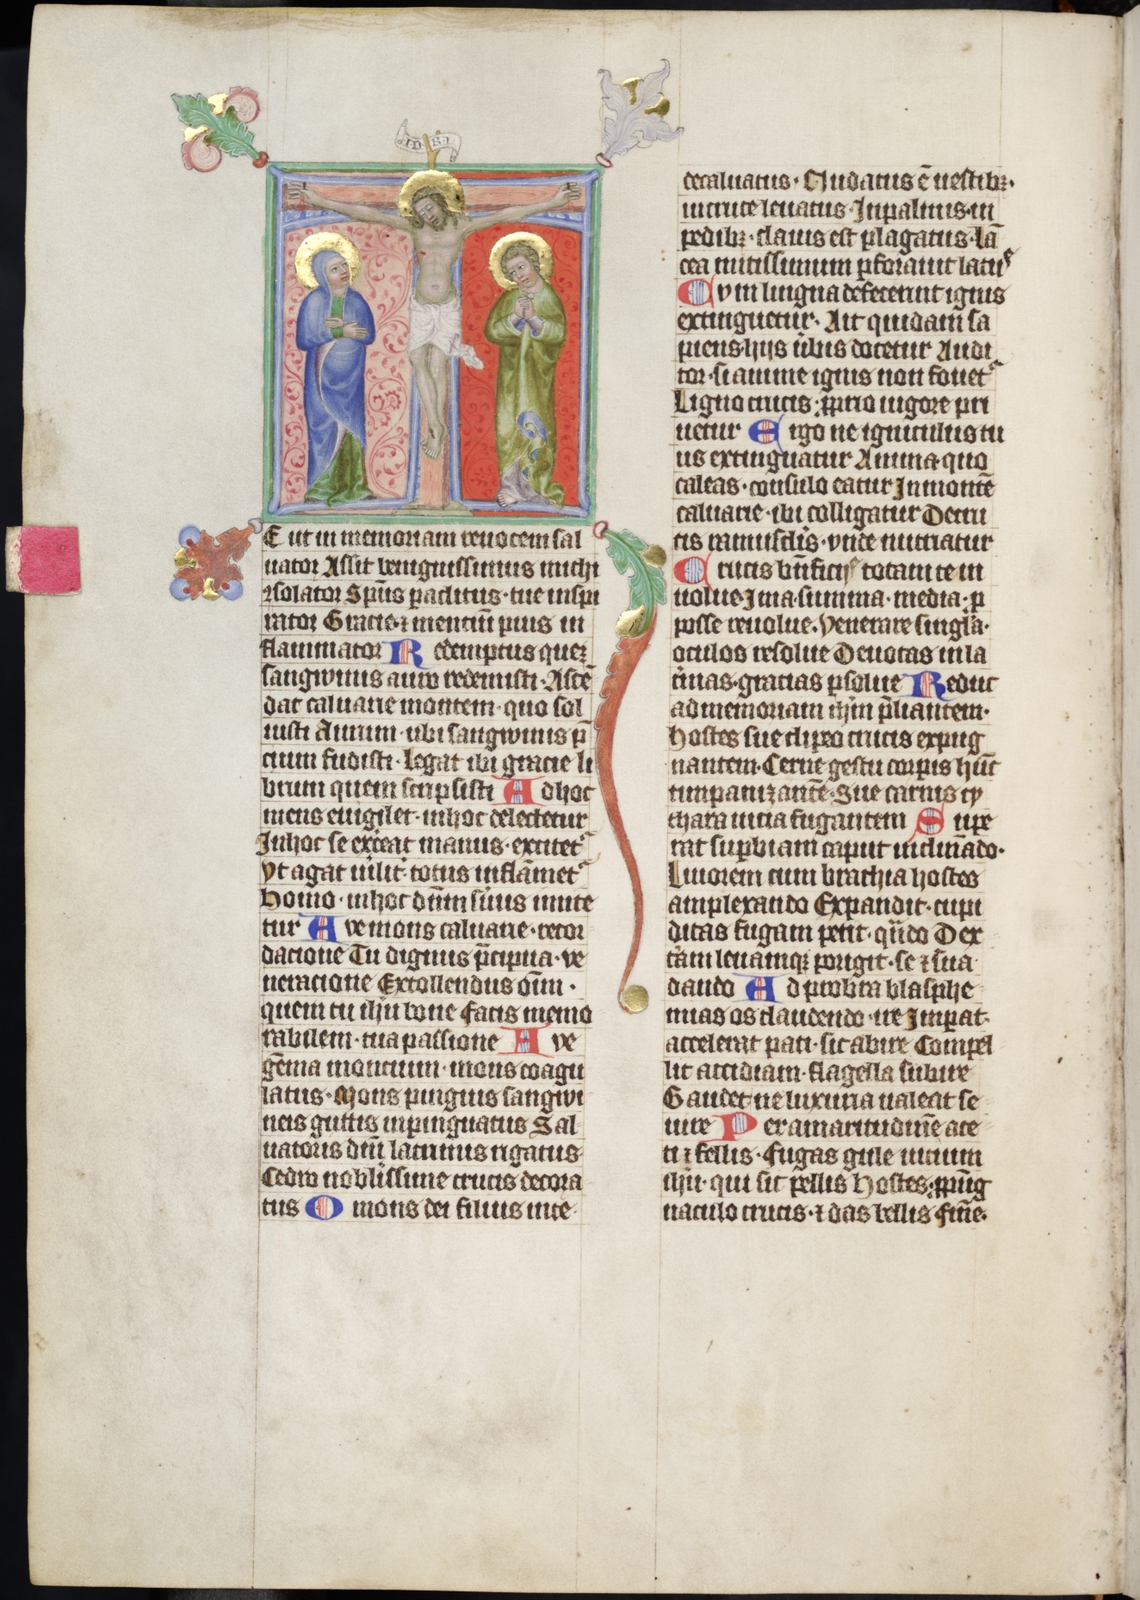 INRI
E ut in memoriam reuocem sal
uator Assit benignissimus michi
Spūs paclitus tue inspi
rator Gracie ⁊ mencium pius in
flammator Redemptus queꝫ
sangwinis auro redemisti · Ascē
dat caluarie montem · quo sol
uisti Aurum · ubi sangwinis p̄
cium fudisti · Legat ibi gracie li
brum quem scripsisti Ad hoc
mens euigilet · in hoc delectetur
In hoc se exceat manus · excitet᷑
Vt agat uilit᷑ · totus inflāmet᷑
Homo · in hoc dn̄m suus inuite
tur Aue mons caluarie · recor
dacione Tu dignus p̄cipua · ve
neracione Extollendus om̄i ·
quem tu ihu bone facis memo
rabilem · tua passione Aue
gēma moncium · mons coagu
latus · Mons pinguis sangwi
neis guttis inpinguatus Sal
uatoris dn̄i lacrimis rigatus
Cedro nobilissime crucis decora
tus O mons dei filius in te
decaluatus · Nudatus ē uestibꝫ ·
in cruce leuatus · In palmis · in
pedibꝫ · clauis est plagatus · lā
cea mitissimum pforauit latus
Cum lingna defecerint ignis
extinguetur · Ait quidam sa
piens · hijs v̄bis docetur Audi
tor · si anime ignis non fouet᷑
Ligno crucis · pprio uigore pri
uetur Ergo ne igniculus tu
us extinguatur Anima · quo
caleas · consulo eatur In montē
caluarie · ibi colligatur De cru
cis ramusclis · vnde nutriatur
Crucis bn̄ficijs totam te in
uolue · Ima · summa · media · p
posse reuolue · Venerare singla ·
oculos resolue Deuotas in la
crimas · gracias psolue Reduc
ad memoriam ihm p̄liantem ·
Hostes sue clipeo crucis expug
nantem · Cerne gestu corpis hūc
timpanizantē · Sue carnis cy
thara uicia fugantem Supe
rat supbiam caput inclinādo ·
Liuorem cum brachia hostes
amplexando Expandit · cupi
ditas fugam petit · qn̄do Dex
tām leuamqꝫ porigit · se ⁊ sua
dando Ad probra blasphe
mias os claudendo · ire Impat᷑ ·
accelerat pati · sic abire Compel
lit accidiam · flagella subire
Gaudet · ne luxuria ualeat se
uire Per amaritudinē ace
ti ⁊ fellis · Fugas gule uicium
ihu · qui sic pellis Hostes · ppug
naculo crucis · ⁊ das bellis finē ·